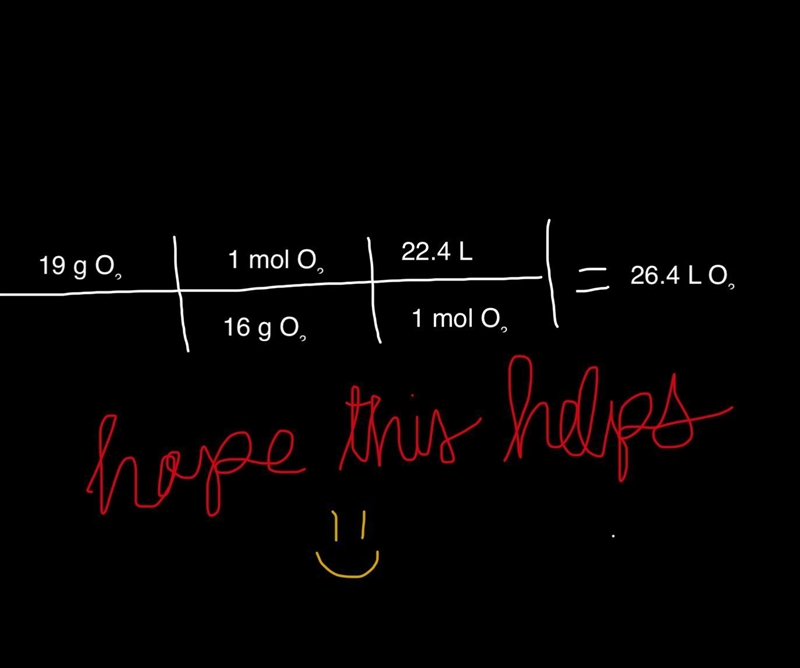 19 g O₂ 1 mol O₂ 22.4 L = 26.4 L O₂
16 g O₂ 1 mol O₂
hope this helps